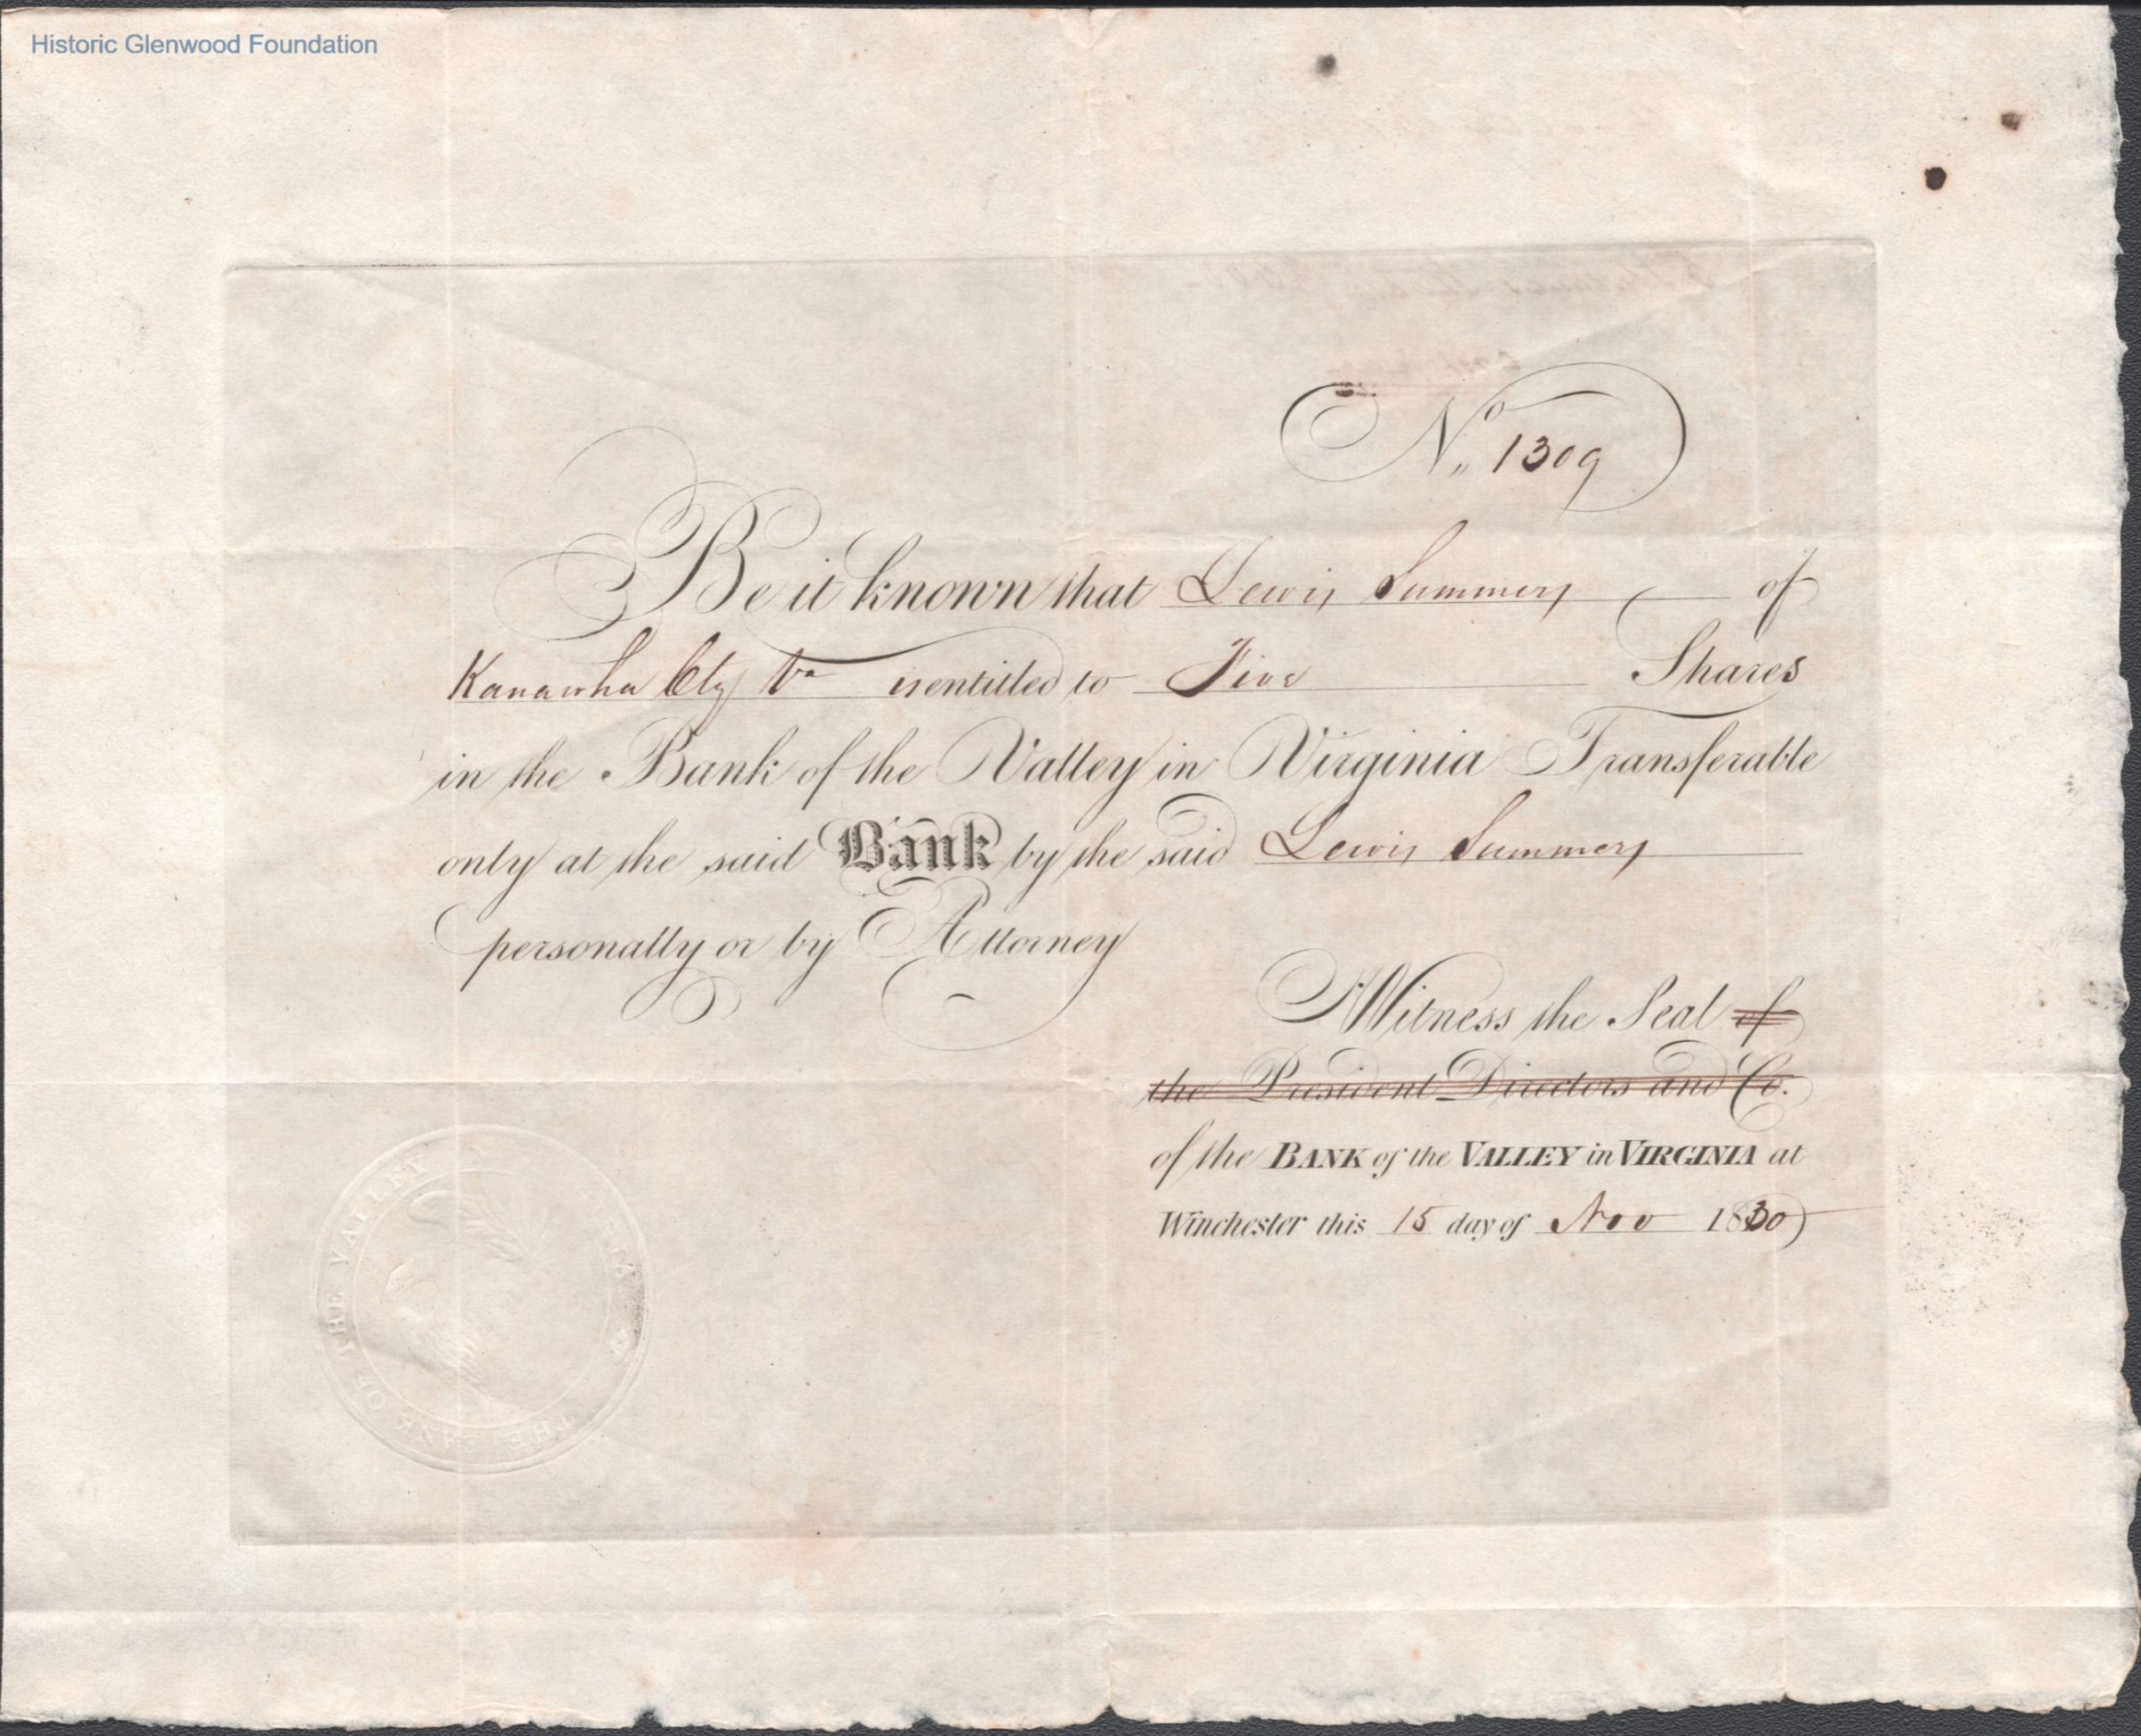 Historic Glenwood Foundation
No. 1309
Be it known that Lewis Summers of
Kanawha Cty Va is entitled to Five Shares
in the Bank of the Valley in Virginia Transferable
only at the said Bank by the said Lewis Summers
personally or by Attorney
Witness the Seal of
the President Directors and Co.
of the BANK of the VALLEY in VIRGINIA at
Winchester this 15 day of Nov 1830
THE BANK OF THE VALLEY